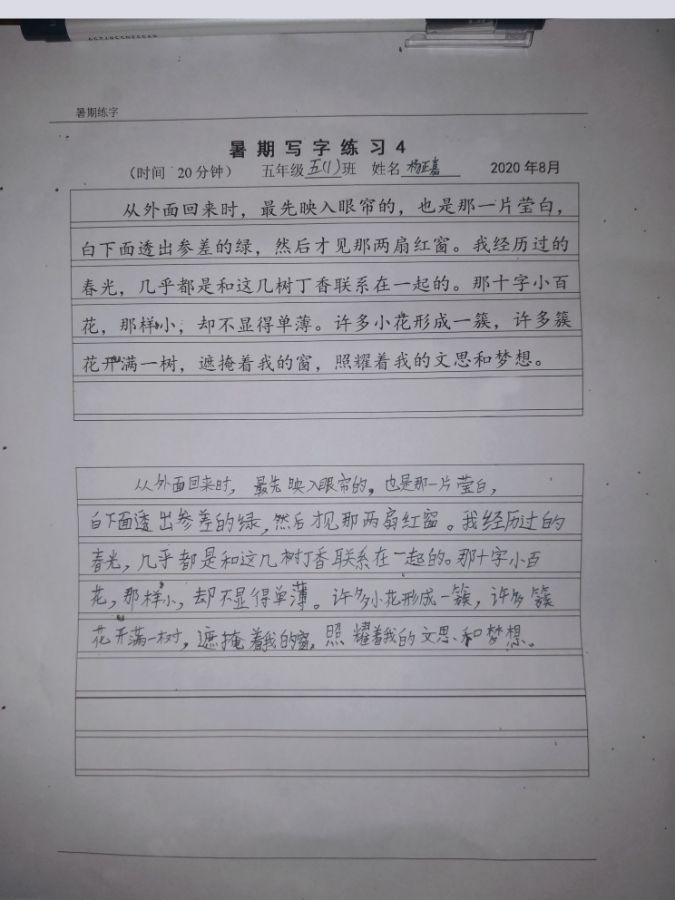 暑期练字
暑期写字练习4
（时间 20分钟） 五年级五(1)班 姓名杨正嘉 2020年8月
从外面回来时，最先映入眼帘的，也是那一片莹白，
白下面透出参差的绿，然后才见那两扇红窗。我经历过的
春光，几乎都是和这几树丁香联系在一起的。那十字小百
花，那样小，却不显得单薄。许多小花形成一簇，许多簇
花开满一树，遮掩着我的窗，照耀着我的文思和梦想。
从外面回来时，最先映入眼帘的，也是那一片莹白，
白下面透出参差的绿，然后才见那两扇红窗。我经历过的
春光，几乎都是和这几树丁香联系在一起的。那十字小百
花，那样小，却不显得单薄。许多小花形成一簇，许多簇
花开满一树，遮掩着我的窗，照耀着我的文思和梦想。